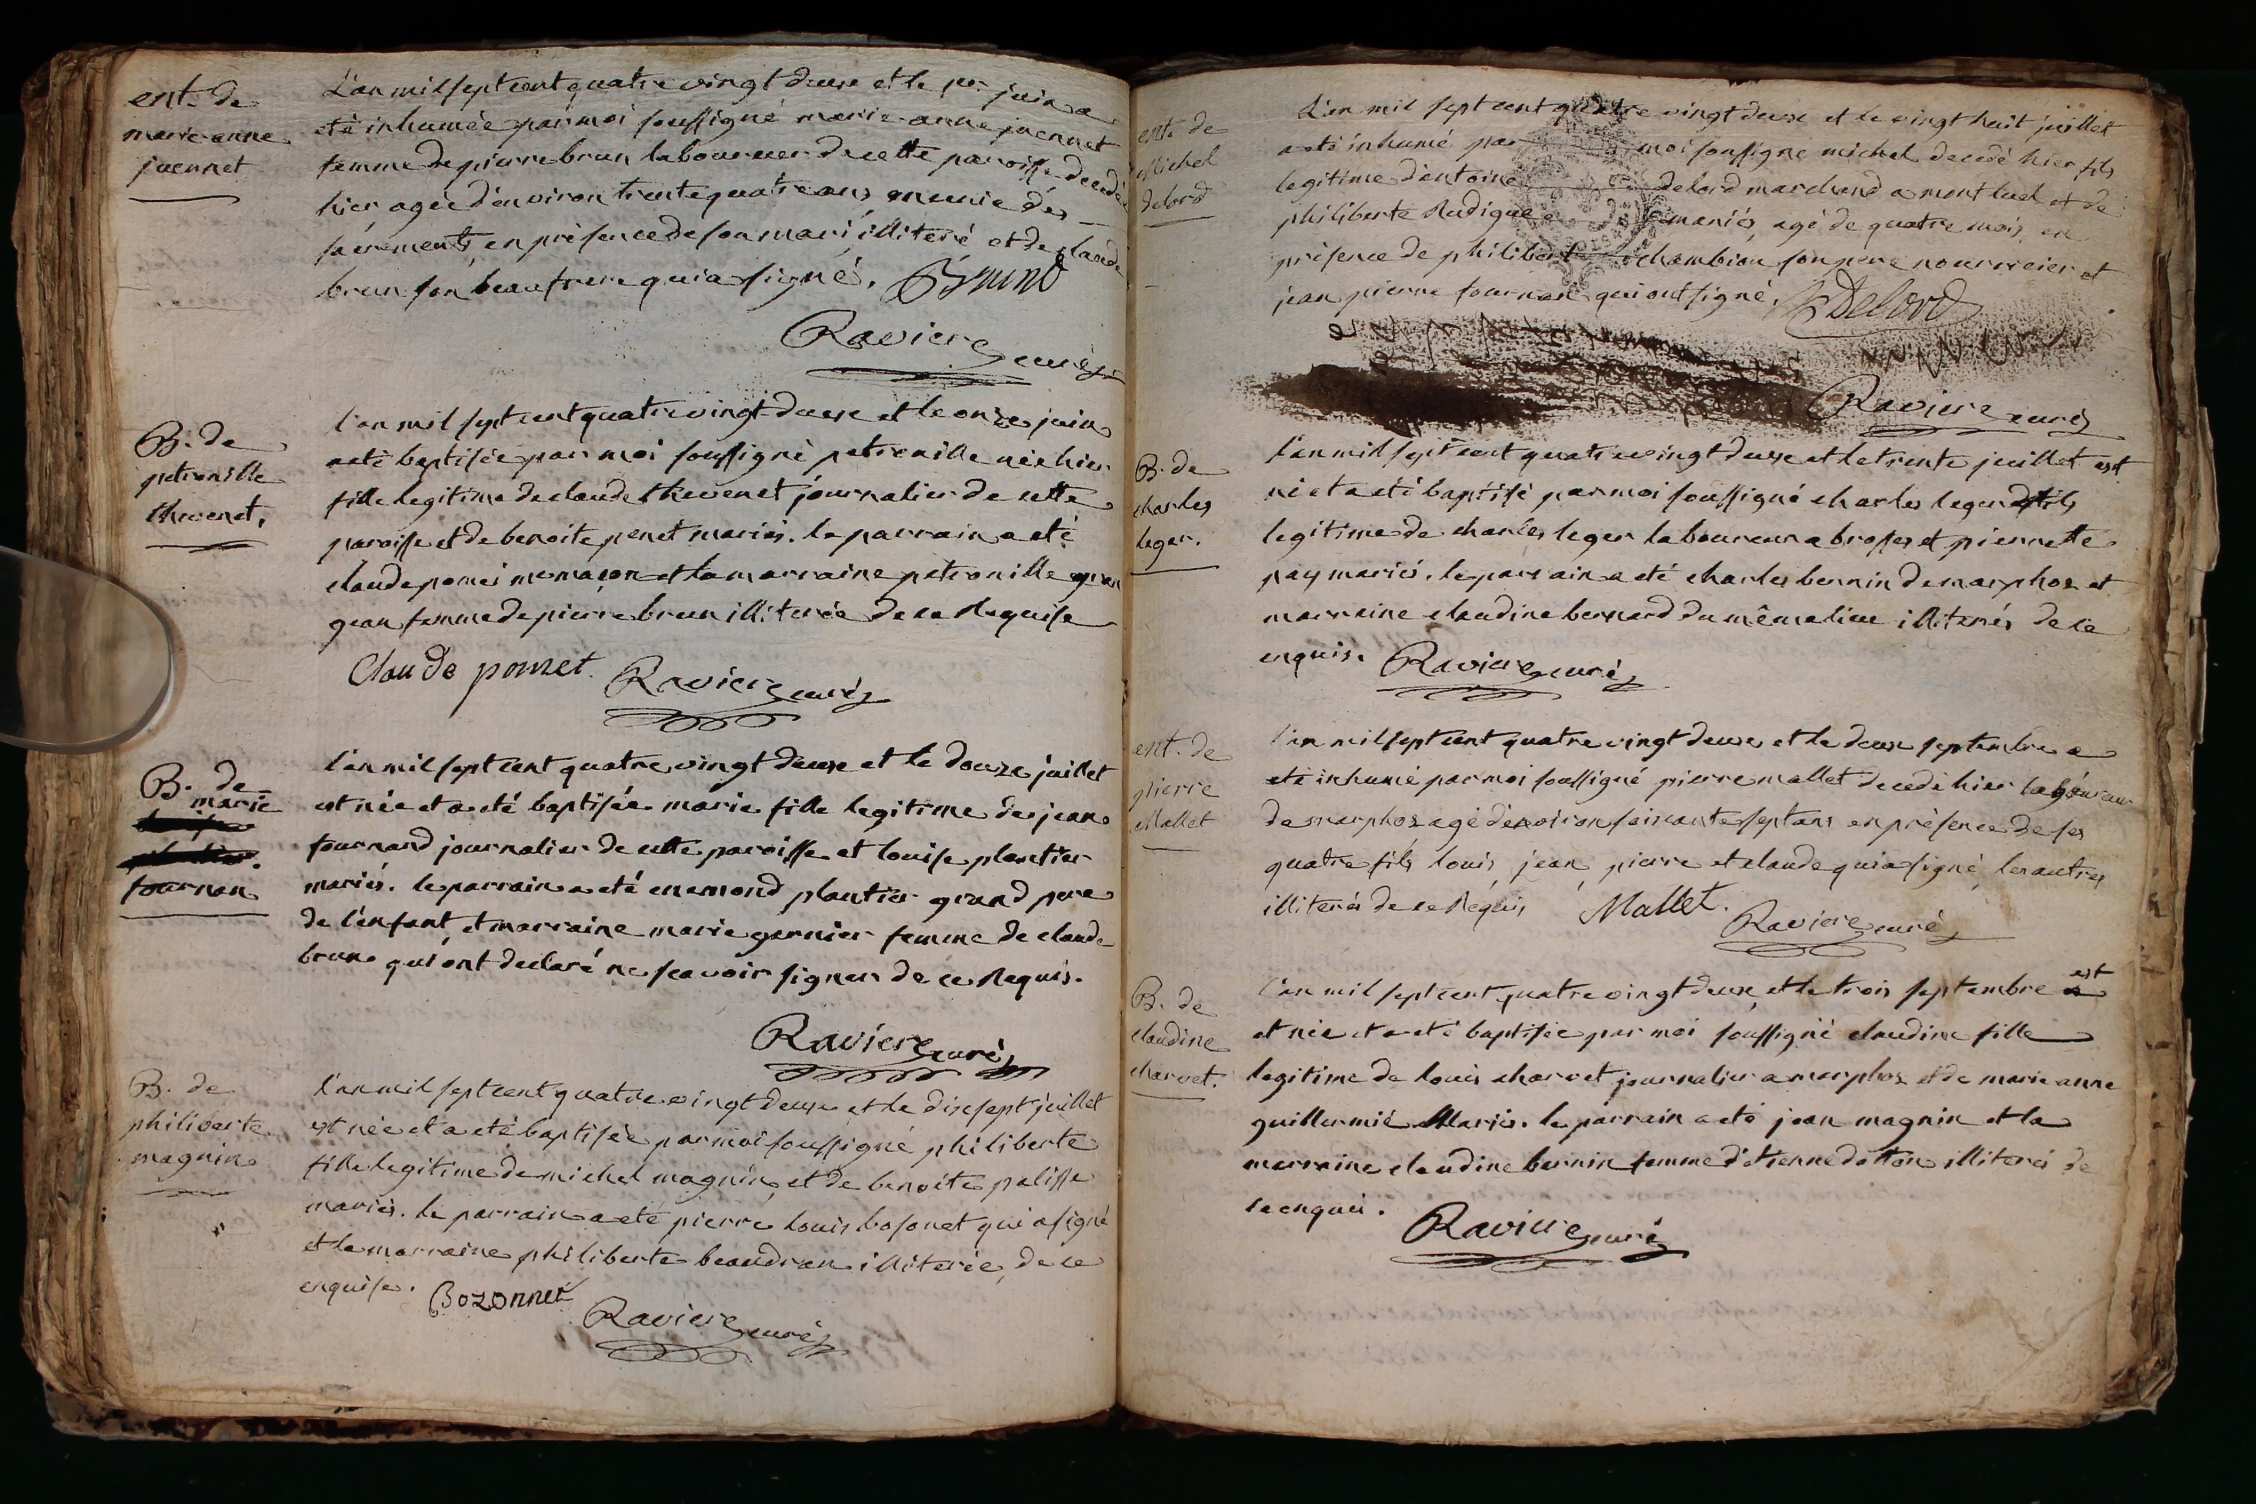 ent. de
marie anne
juennet
L'an mil sept cent quatre vingt deux et le pr. juin a
eté inhumée par moi soussigné marie anne juennet
femme de pierre brun laboureur de cette paroisse decedée
hier agée d'environ trente quatre ans munie des
sacrements, en présence de son mari illiteré et de claude
brun son beaufrere qui a signé. Brund
Raviere curé
B. de
petronille
thevenet.
l'an mil sept cent quatre vingt deux et le onze juin
a eté baptisée par moi soussigné petronille née hier
fille legitime de claude thevenet journalier de cette
paroisse et de benoite penet mariés. le parrain a eté
claude pomei me maçon et la marraine petronille gran
gean femme de pierre brun illiterée de ce Requise
Claude pomet. Raviere curé
B. de
marie
fournan
l'an mil sept cent quatre vingt deux et le douze juillet
est née et a eté baptisée marie fille legitime de jean
fournand journalier de cette paroisse et louise plantier
mariés. le parrain a eté enemond plantier grand pere
de l'enfant et marraine marie garnier femme de claude
brun qui ont declaré ne scavoir signer de ce Requis.
Raviere curé
B. de
philiberte
magnin
l'an mil sept cent quatre vingt deux et le dix sept juillet
est née et a eté baptisée par moi soussigné philiberte
fille legitime de michel magnin et de benoite palisse
mariés. le parrain a eté pierre louis bosonet qui a signé
et la marraine philiberte beaudran illiterée, de ce
enquise. Bozonnet
Raviere curé
ent. de
Michel
delord
L'an mil sept cent quatre vingt deux et le vingt huit juillet
a eté inhumé par moi soussigné michel decedé hier fils
legitime d'antoine delord marchand a montluel et de
philiberte Rudigue mariés, agé de quatre mois, en
présence de philibert chambiou son pere nourricier et
jean pierre fournan qui ont signé. Delord
Raviere curé
B. de
charles
leger.
l'an mil sept cent quatre vingt deux et le trente juillet est
né et a eté baptisé par moi soussigné charles leger fils
legitime de charles leger laboureur a brosses et pierrette
pay mariés. le parrain a eté charles bernin de marphoz et
marraine claudine bernard du même lieu illiterés de ce
enquis. Raviere curé
ent. de
pierre
Mallet
l'an mil sept cent quatre vingt deux et le deux septembre a
eté inhumé par moi soussigné pierre mallet decedé hier laboureur
de marphoz agé d'environ soixante sept ans en présence de ses
quatre fils louis, jean, pierre et claude qui a signé, les autres
illiterés de ce Requis Mallet.
Raviere curé
B. de
claudine
charvet.
l'an mil sept cent quatre vingt deux et le trois septembre est
et née et a eté baptisée par moi soussigné claudine fille
legitime de louis charvet journalier a marphoz et de marie anne
guillermié Mariés. le parrain a eté jean magnin et la
marraine claudine bernin femme d'etienne dotton illiterés de
ce enquis.
Raviere curé